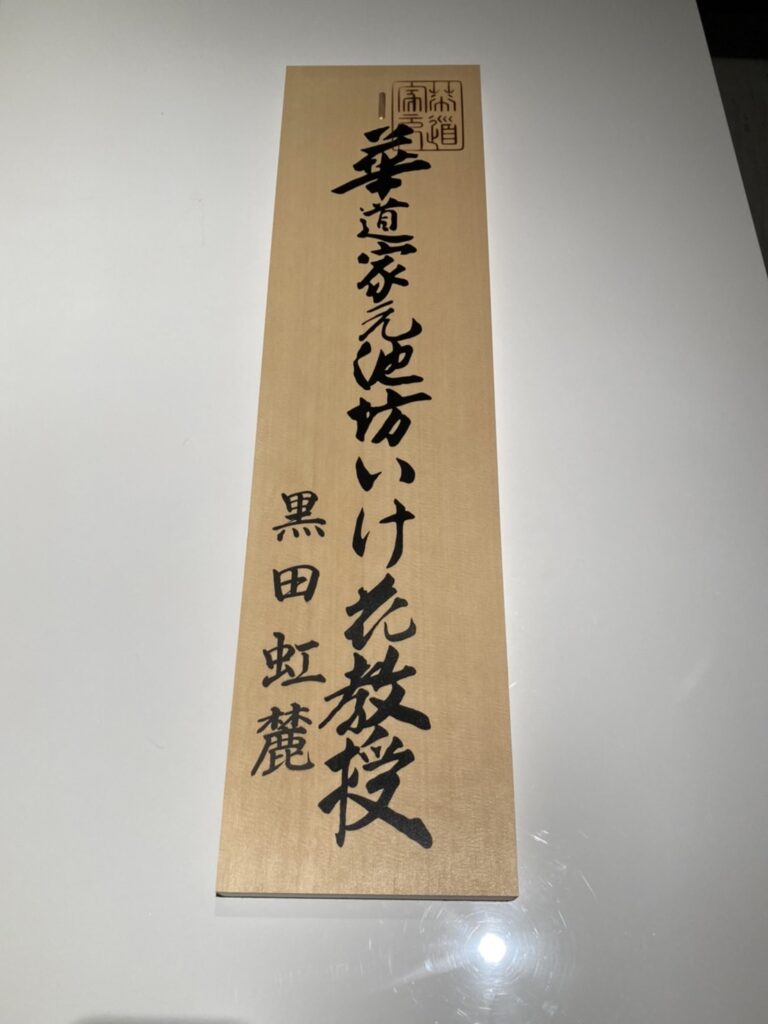 華道
家元
華道家元池坊いけ花教授
黒田虹麓